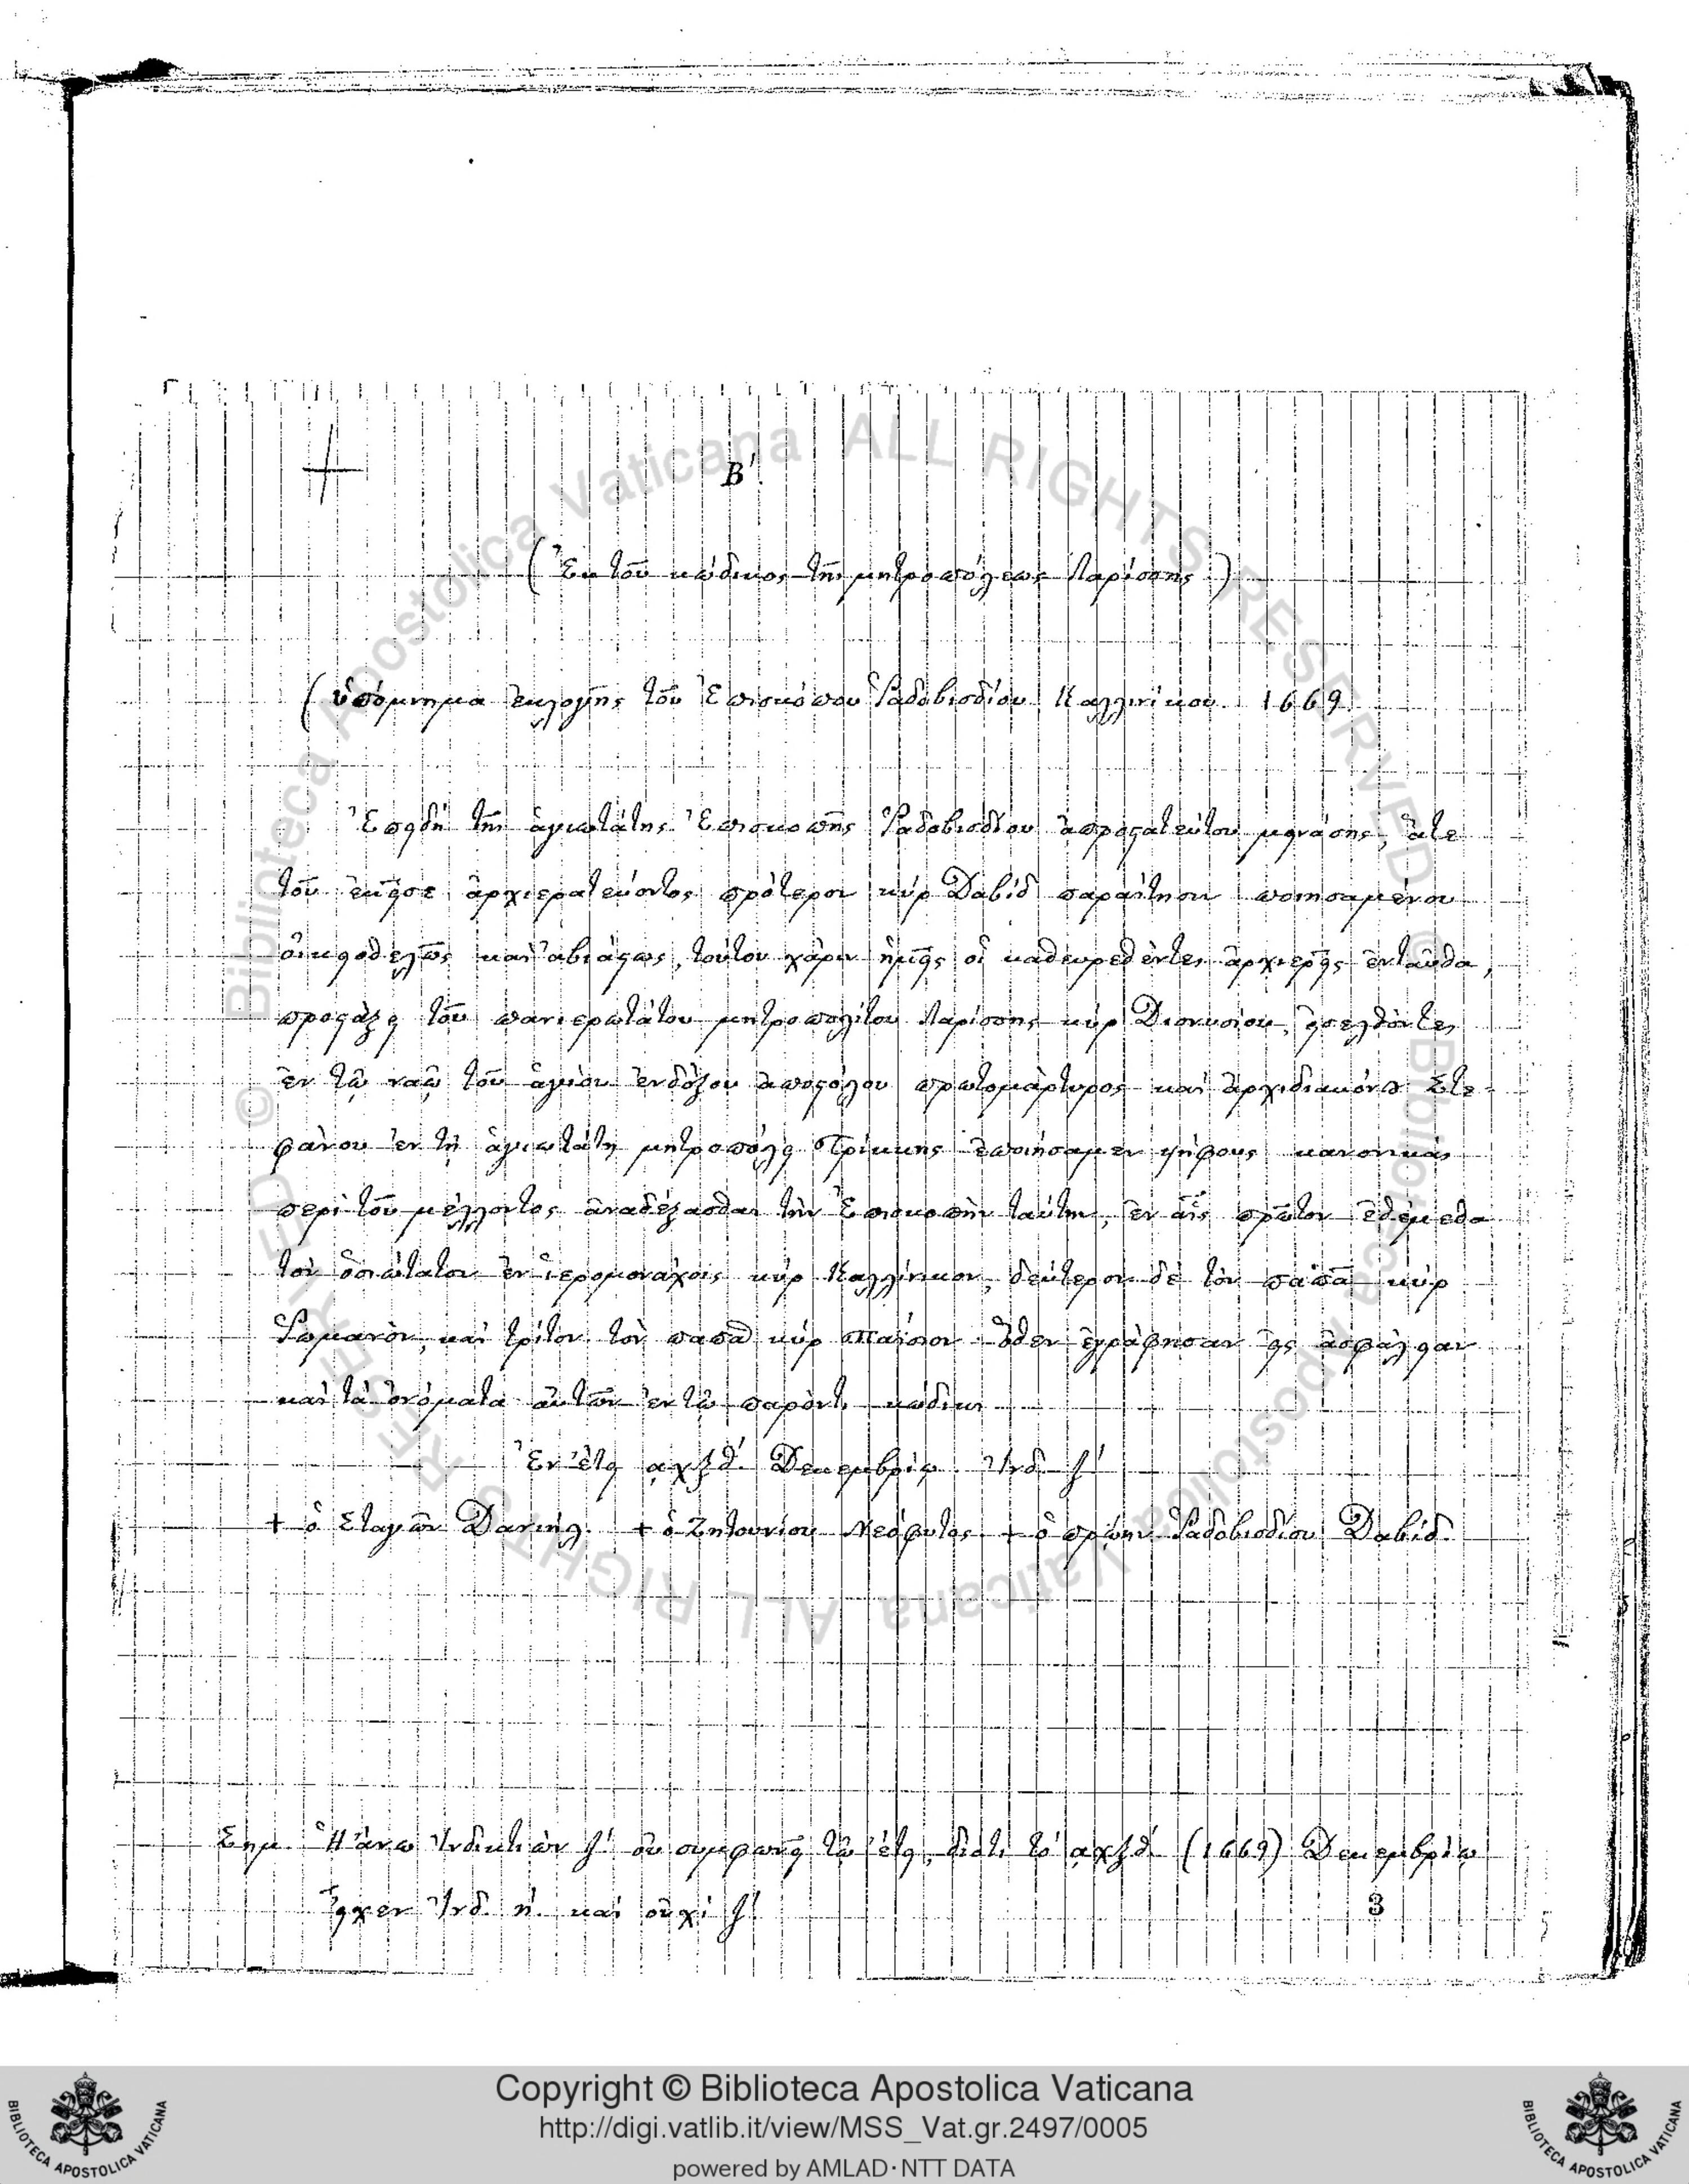 Β'.
(Ἐκ τοῦ κώδικος τῆς μητροπόλεως Λαρίσσης)
(Ὑπόμνημα ἐκλογῆς τοῦ Ἐπισκόπου Ῥαδοβισδίου Καλλινίκου 1669
Ἐπειδὴ τῆς ἁγιωτάτης Ἐπισκοπῆς Ῥαδοβισδίου ἀπροστατεύτου μεινάσης, ἅτε
τοῦ ἐκεῖσε ἀρχιερατεύοντος πρότερον κύρ Δαβίδ παραίτησιν ποιησαμένου
οἰκειοθελῶς καὶ ἀβιάστως, τούτου χάριν ἡμεῖς οἱ καθευρεθέντες ἀρχιερεῖς ἐνταῦθα,
προστάξει τοῦ πανιερωτάτου μητροπολίτου Λαρίσσης κύρ Διονυσίου, εἰσελθόντες
ἐν τῷ ναῷ τοῦ ἁγίου ἐνδόξου ἀποστόλου πρωτομάρτυρος καὶ ἀρχιδιακόνου Στε-
φάνου ἐν τῇ ἁγιωτάτῃ μητροπόλει Τρίκκης ἐποιήσαμεν ψήφους κανονικάς
περὶ τοῦ μέλλοντος ἀναδέξασθαι τὴν Ἐπισκοπὴν ταύτην, ἐν αἷς πρῶτον ἐθέμεθα
τὸν ὁσιώτατον ἐν ἱερομονάχοις κύρ Καλλίνικον, δεύτερον δὲ τὸν παπᾶ κύρ
Ῥωμανὸν, καὶ τρίτον τὸν παπᾶ κύρ Παΐσιον. Ὅθεν ἐγράφησαν εἰς ἀσφάλειαν
καὶ τὰ ὀνόματα αὐτῶν ἐν τῷ παρόντι κώδικι
Ἐν ἔτει αχξθ' Δεκεμβρίῳ Ἰνδ ζ'
+ ὁ Σταγῶν Δανιήλ. + ὁ Ζητουνίου Νεόφυτος + ὁ πρώην Ῥαδοβισδίου Δαβίδ.
Σημ. Ἡ ἄνω Ἰνδικτιὼν ζ' οὐ συμφωνεῖ τῷ ἔτει, διότι τὸ αχξθ' (1669) Δεκεμβρίῳ
εἶχεν Ἰνδ. η'. καὶ οὐχὶ ζ'
3
© Biblioteca Apostolica Vaticana ALL RIGHTS RESERVED
Copyright © Biblioteca Apostolica Vaticana
http://digi.vatlib.it/view/MSS_Vat.gr.2497/0005
powered by AMLAD·NTT DATA
BIBLIOTECA APOSTOLICA VATICANA
BIBLIOTECA APOSTOLICA VATICANA